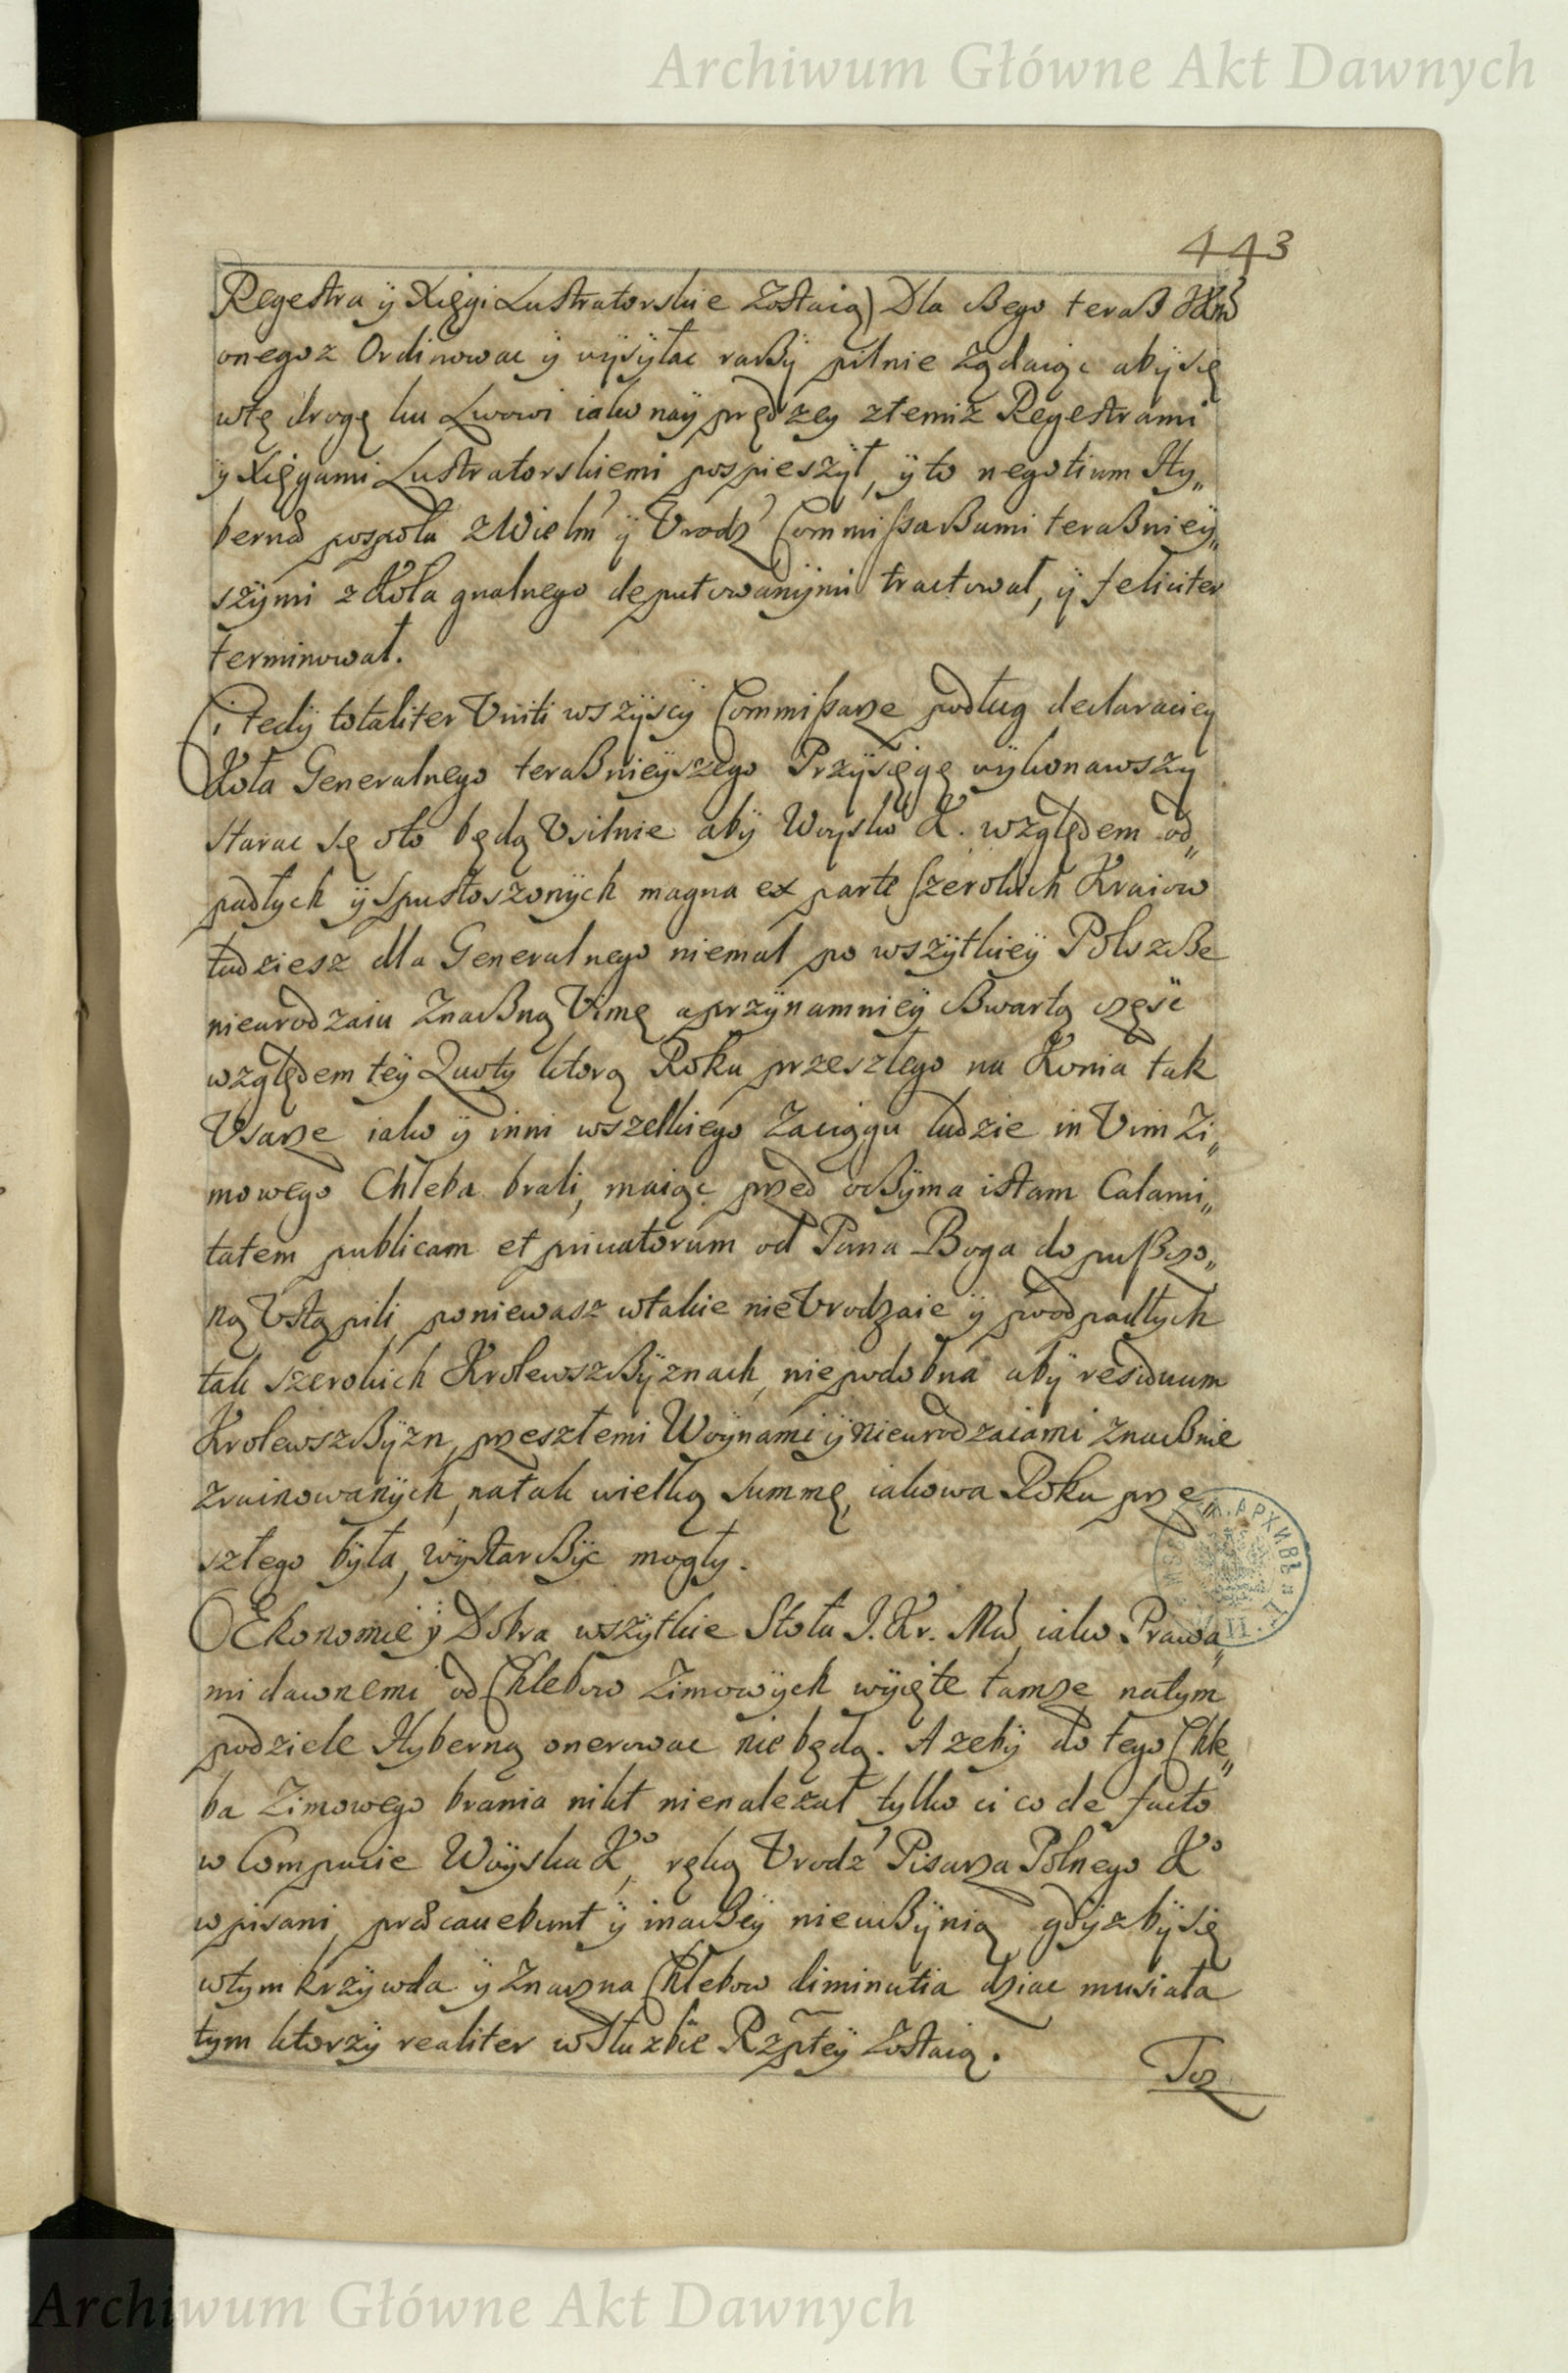 Archiwum Główne Akt Dawnych
443
Regestra ÿ Xięgi Lustratorskie Zostaią) Dla czego teraz JKmć
onegoz Ordinowac ÿ wÿsÿłac raczÿ pilnie Ządaiąc abÿ się
wtę drogę ku Lwowi iako naÿ prędzey ztemiz Regestrami
ÿ Xięgami Lustratorskiemi pospieszÿł, ÿ to negotium Hy„
bernæ pospołu z Wielm ÿ Vrodz Commissarzami teraznieÿ„
szÿmi z Koła gnalnego deputowanÿmi tractował, ÿ feliciter
terminował.
Ci tedÿ totaliter Vniti wszÿscÿ Commissarze podług declaraciey
Koła Generalnego teraznieÿszego Przÿsięgę wÿkonawszy
starac się oto będą Vsilnie abÿ Woysko K. względem od„
padłych ÿ spustoszonÿch magna ex parte szerokich Kraiow
tudziesz dla Generalnego niemal po wszÿtkieÿ Polszcze
nieurodzaiu Znaczną Vimę a przÿnamnieÿ czwartą część
względem teÿ Quoty ktorą Roku przeszłego na Konia tak
Vsarze iako ÿ inni wszelkiego Zaciągu ludzie in Vim Zi„
mowego Chleba brali, maiąc przed oczÿma istam Calami„
tatem publicam et priuatorum od Pana Boga dopuszczo„
ną Vstąpili, poniewasz wtakie nieVrodzaie ÿ poodpadłych
tak szerokich Krolewszczÿznach, niepodobna abÿ residuum
Krolewszczÿzn, przeszłemi Woÿnami ÿ nieurodzaiami znacznie
zruinowanÿch, natak wielką summę, iakowa Roku prze„
szłego bÿła, wÿstarczÿc mogły.
Ekonomie ÿ Dobra wszÿtkie Stołu J. Kr. Mci iako Prawa„
mi dawnemi od Chlebow Zimowÿch wÿięte tamze natym
podziele Hyberną onerowac nie będą. A zebÿ do tego Chle„
ba Zimowego brania nikt nienalezał tylko ci co de facto
w Compucie Woÿska K°, ręką Vrodz Pisarza Polnego K°
wpisani, præcauebunt ÿ inaczeÿ nieuczÿnią gdÿzbÿ się
wtym krzÿwda ÿ Znaczna Chlebow diminutia dziac musiała
tym ktorzÿ realiter wSłuzbie Rzpteÿ Zostaią.
Toz
Archiwum Główne Akt Dawnych